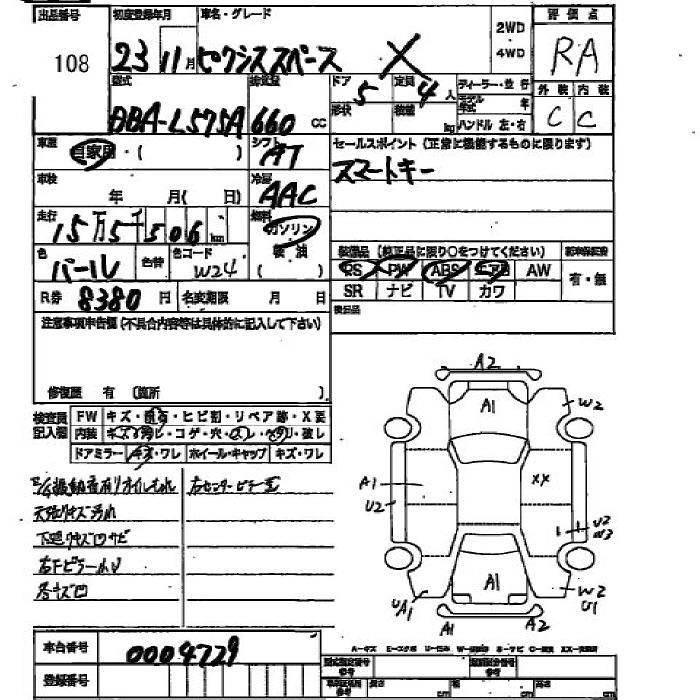 出品番号 初度登録年月 車名・グレード 2WD 4WD 評価点
108 23 11月 ピクシススペース X RA
型式 排気量 ドア 5 定員 4人 ディーラー・並行 外装 内装
DBA-L575A 660 cc 形状 積載 kg モデル年式 年 C C
ハンドル 左・右
車歴 自家用・( ) シフト AT セールスポイント(正常に機能するものに限ります)
スマートキー
車検 年 月( 日) 冷房 AAC
走行 15万5千506km 燃料 ガソリン 軽油
色 パール 色替 色コード W24
装備品(純正品に限り○をつけてください) 新車保証書
PS PW ABS エアB AW 有・無
SR ナビ TV カワ
R券 8380円 名変期限 月 日
後日品
注意事項申告欄(不具合内容等は具体的に記入して下さい)
修復歴 有 (箇所 )
検査員記入欄 FW キズ・飛石・ヒビ割・リペア跡・X要
内装 キズ・汚レ・コゲ・穴・破レ
ドアミラー キズ・ワレ ホイール・キャップ キズ・ワレ
E/G振動音有りオイルもれ 右センターピラー歪
天張りキズ汚れ
下廻りキズ凹サビ
各キズ凹
A2
A1 W2
A1 XX
U2
U2
W3
A1 W2
UA1 U1
A1 A2
A-キズ E-エクボ U-凹み W-補修跡 S-サビ C-腐食 XX-交換済
車台番号 0004729
登録番号
型式指定番号 類別区分番号
長さ cm 幅 cm 高さ cm